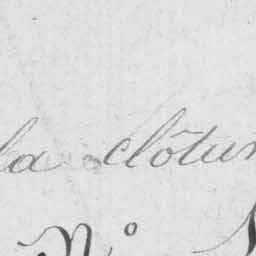 la clôtur
N°